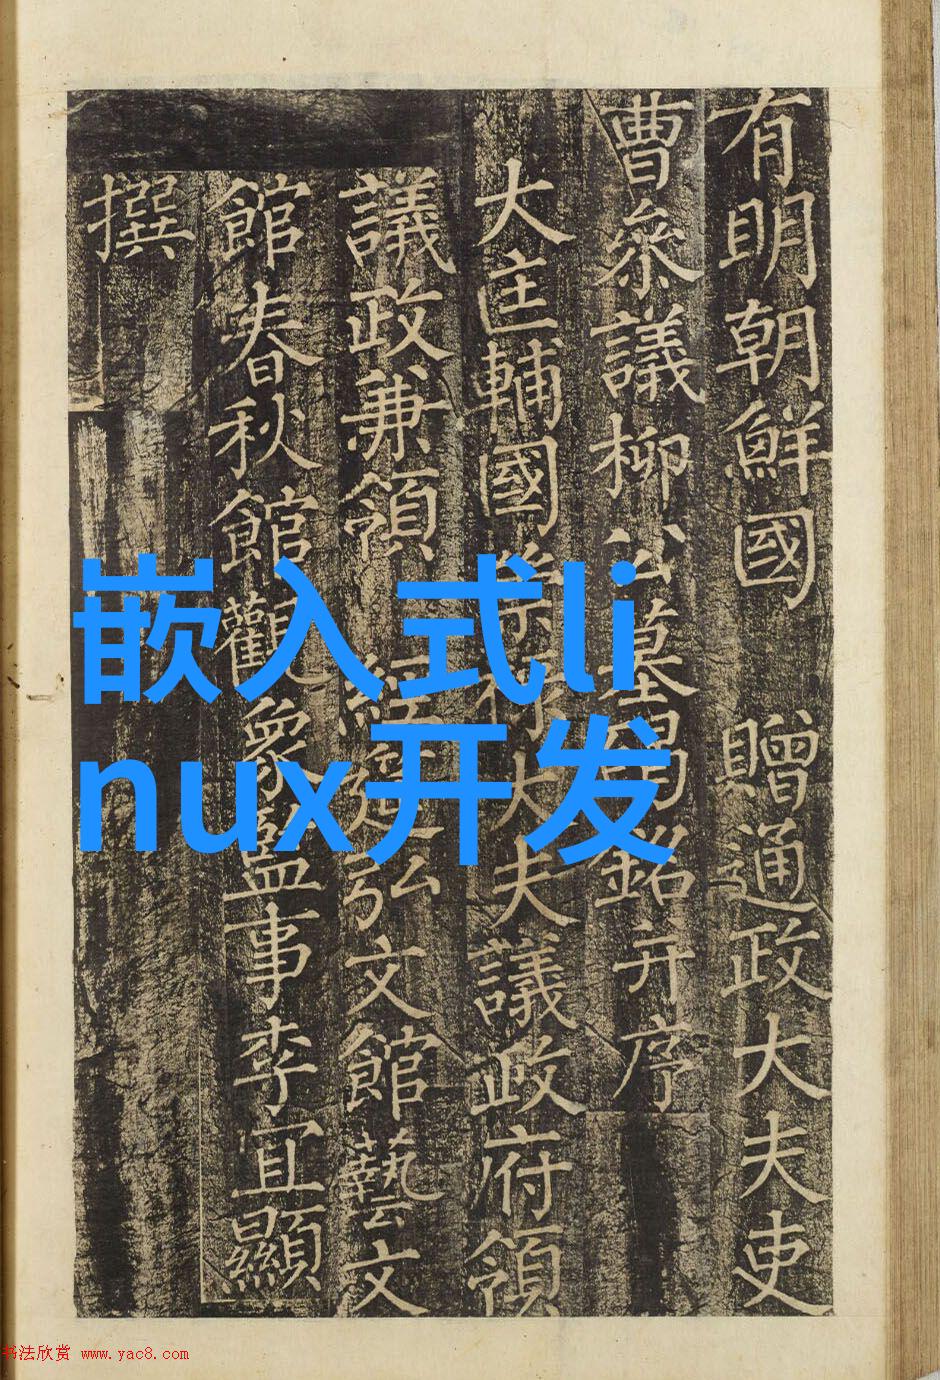 有明朝鮮國 贈通政大夫吏
曹叅議柳公墓碣銘并序
大匡輔國崇祿大夫議政府領
議政兼領 經筵弘文館藝文
館春秋館觀象監事李宜顯
撰
嵌入式li
nux开发
书法欣赏 www.yac8.com